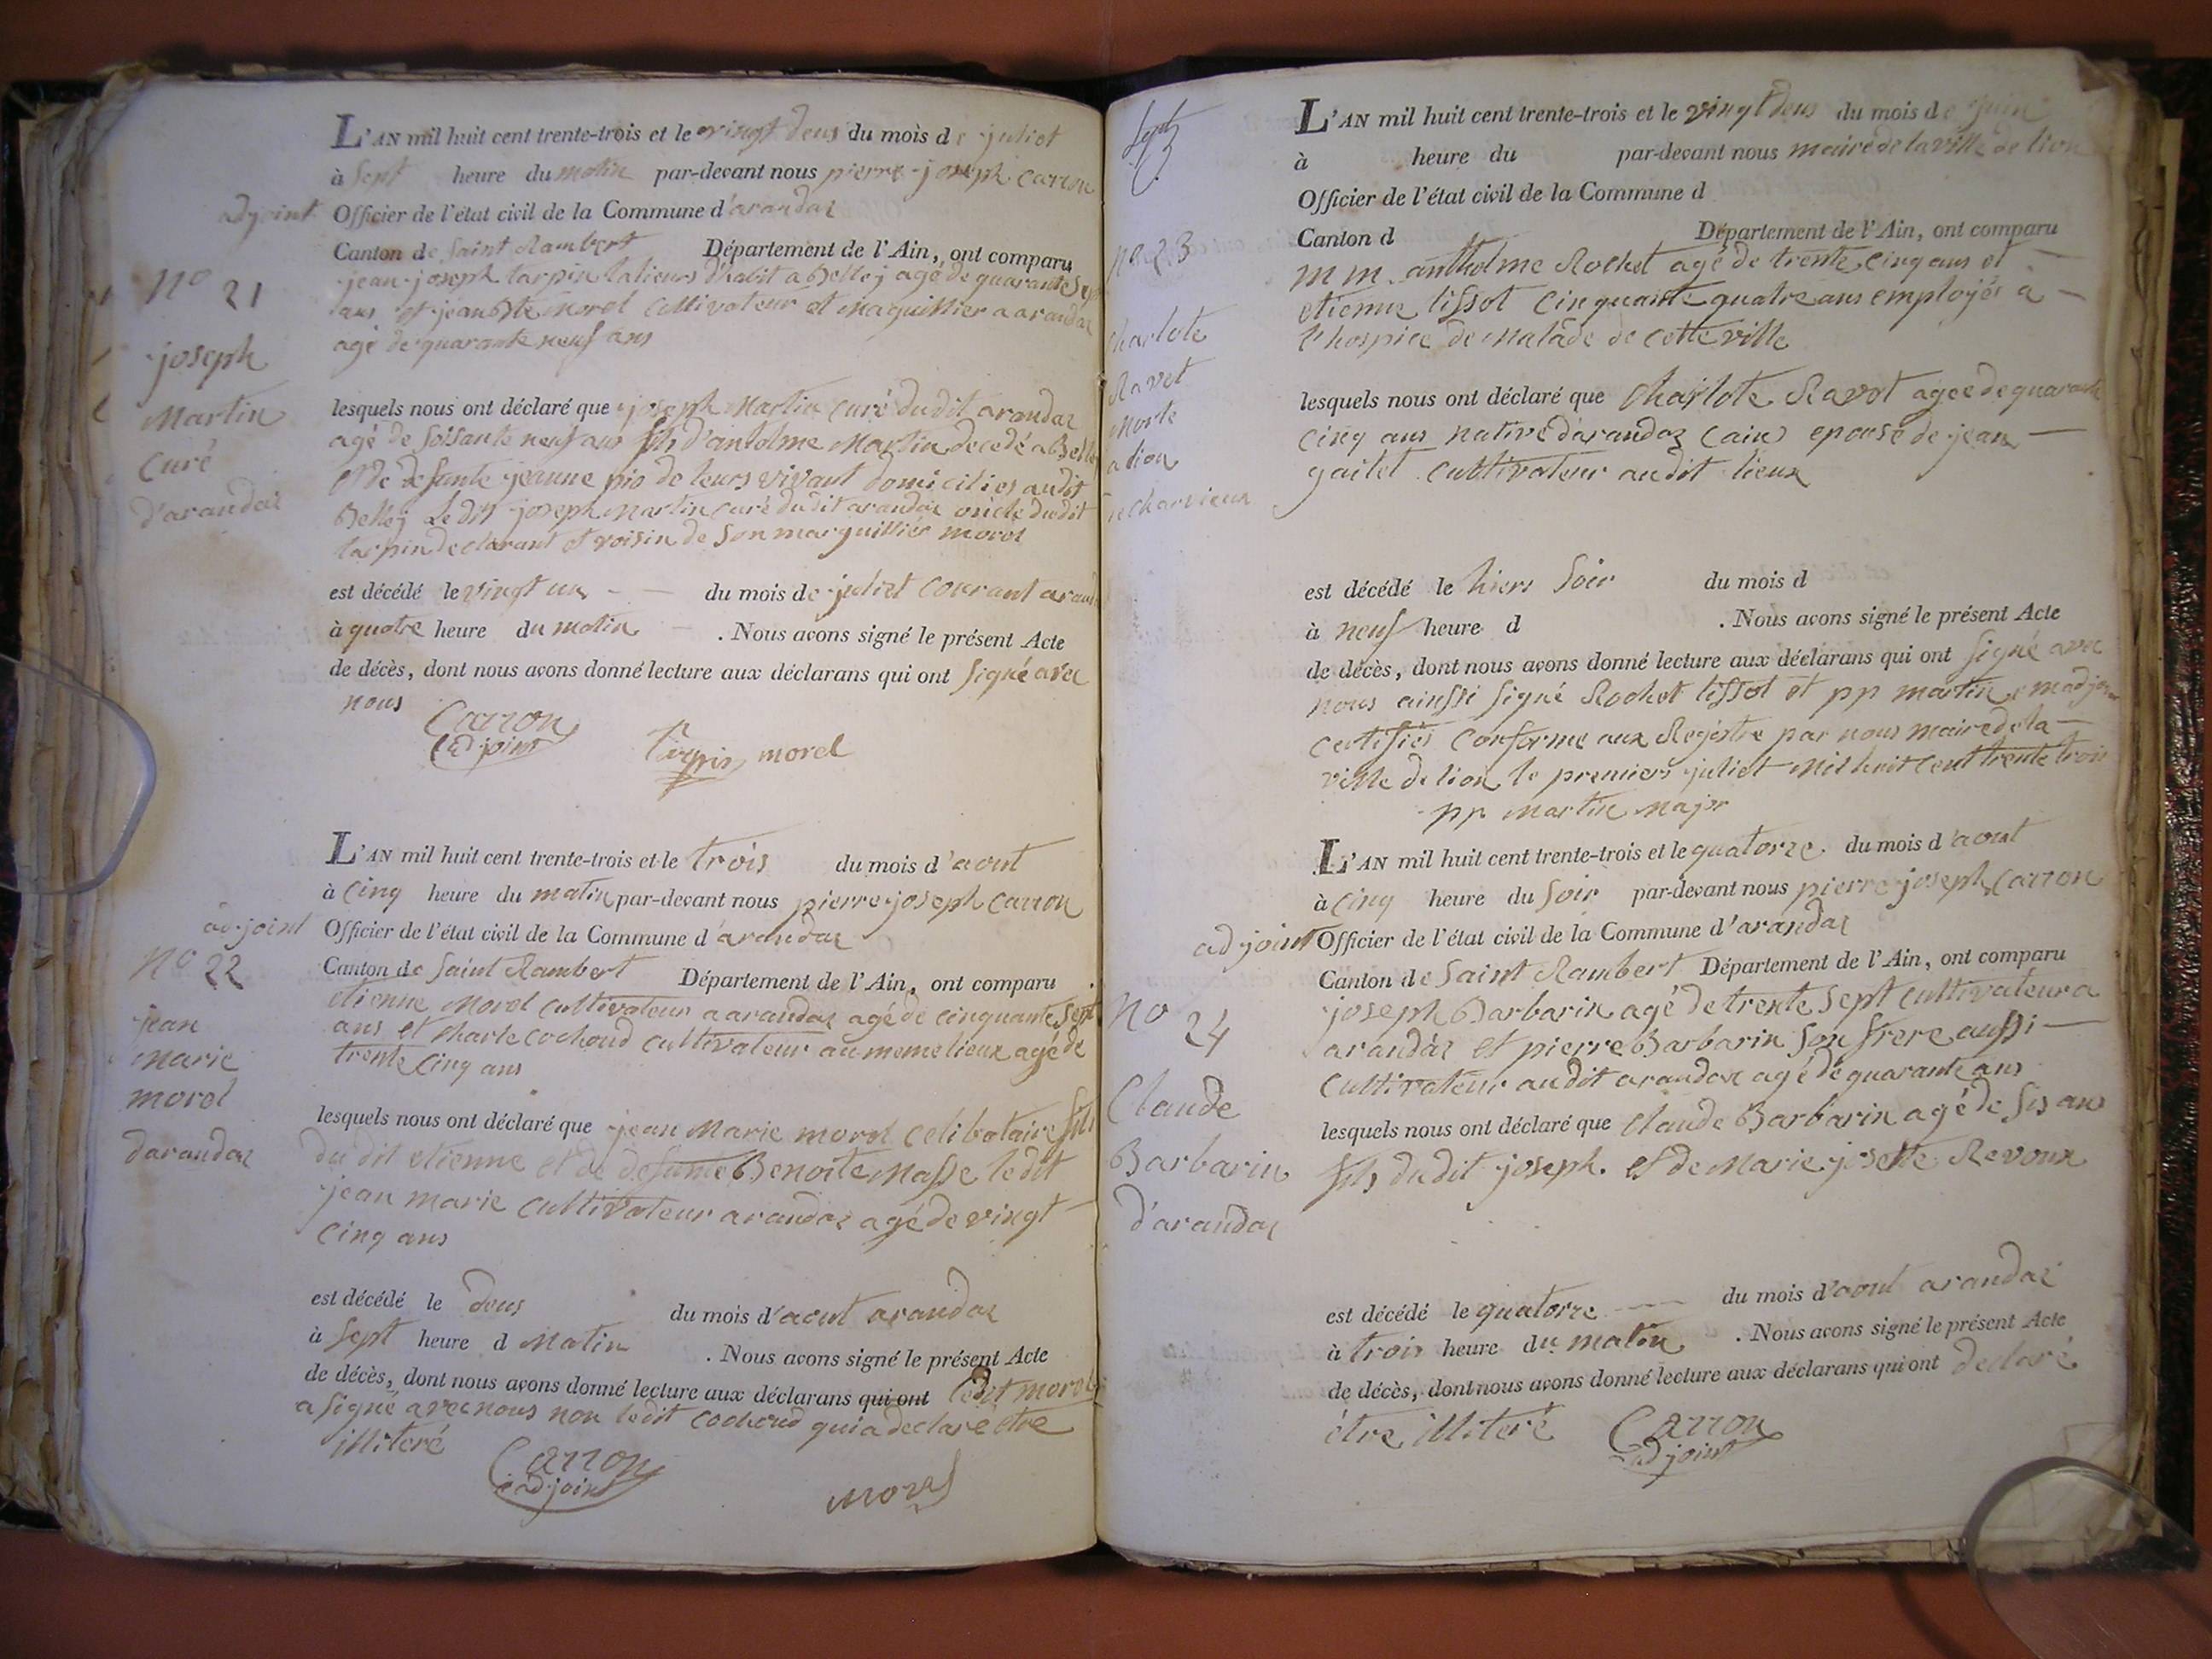 L'AN mil huit cent trente-trois et le vingt deus du mois de juliet
à Sept heure du matin par-devant nous pierre joseph carron
adjoint Officier de l'état civil de la Commune d'arandas
Canton de Saint Rambert Département de l'Ain, ont comparu
jean joseph tarpin d'habit a Belley agé de quarante Sept
ans et jean Bte morel cultivateur et maguillier a arandas
agé de quarante neuf ans
No 21
joseph
Martin
Curé
d'arandas
lesquels nous ont déclaré que joseph Martin curé dudit arandas
agé de Soisante neuf ans fils d'antelme Martin decedé a Belley
et de defunte jeanne pio de leurs vivant domicilies audit
Belley Ledit joseph Martin curé dudit arandas oncle dudit
tarpin declarant et voisin de Son marguillier morel
est décédé le vingt un du mois de juliet courant arandas
à quatre heure du matin . Nous avons signé le présent Acte
de décès, dont nous avons donné lecture aux déclarans qui ont Signé avec
nous
Carron
adjoint
Tarpin morel
L'AN mil huit cent trente-trois et le trois du mois d'aout
à Cinq heure du matin par-devant nous pierre joseph carron
adjoint Officier de l'état civil de la Commune d'arandas
Canton de Saint Rambert Département de l'Ain, ont comparu
etienne Morel cultivateur a arandas agé de cinquante Sept
ans et charle cochoud cultivateur au meme lieux agé de
trente cinq ans
No 22
jean
marie
morel
darandas
lesquels nous ont déclaré que jean Marie morel celibataire fils
du dit etienne et de defunte Benoite Masse ledit
jean marie cultivateur arandas agé de vingt
Cinq ans
est décédé le deus du mois d'aout arandas
à Sept heure d Matin . Nous avons signé le présent Acte
de décès, dont nous avons donné lecture aux déclarans qui ont ledit morel
a Signé avec nous non ledit cochoud qui a declare etre
illiteré
Carron
adjoint
morel
L'AN mil huit cent trente-trois et le vingt deus du mois de juin
à heure du par-devant nous maire de la ville de lion
Officier de l'état civil de la Commune d
Canton d Département de l'Ain, ont comparu
m m. anthelme Rochet agé de trente cinq ans et
etienne tissot Cinquante quatre ans employés à
l'hospice de Malade de cette ville
no 23
charlote
Ravet
Morte
a lion
lesquels nous ont déclaré que charlote Ravet agee de quarante
cinq ans native d'arandas (ain) epouse de jean
gailet cultivateur audit lieux
est décédé le hiers Soir du mois d
à neuf heure d . Nous avons signé le présent Acte
de décès, dont nous avons donné lecture aux déclarans qui ont Signé avec
nous ainssi Signé Rochet tissot et pp martin
certifiés Conforme aux Registre par nous maire de la
ville de lion le premiers juliet mil huit cent trente trois
pp Martin major
L'AN mil huit cent trente-trois et le quatorze du mois d'aout
à Cinq heure du Soir par-devant nous pierre joseph Carron
adjoint Officier de l'état civil de la Commune d'arandas
Canton de Saint Rambert Département de l'Ain, ont comparu
joseph Barbarin agé de trente Sept cultivateur a
arandas et pierre Barbarin Son frere aussi
cultivateur audit arandas agé de quarante ans
No 24
Claude
Barbarin
d'arandas
lesquels nous ont déclaré que claude Barbarin agé de Sis ans
fils dudit joseph. et de Marie josette Revoux
est décédé le quatorze du mois d'aout arandas
à trois heure du matin . Nous avons signé le présent Acte
de décès, dont nous avons donné lecture aux déclarans qui ont declaré
être illiteré
Carron
adjoint